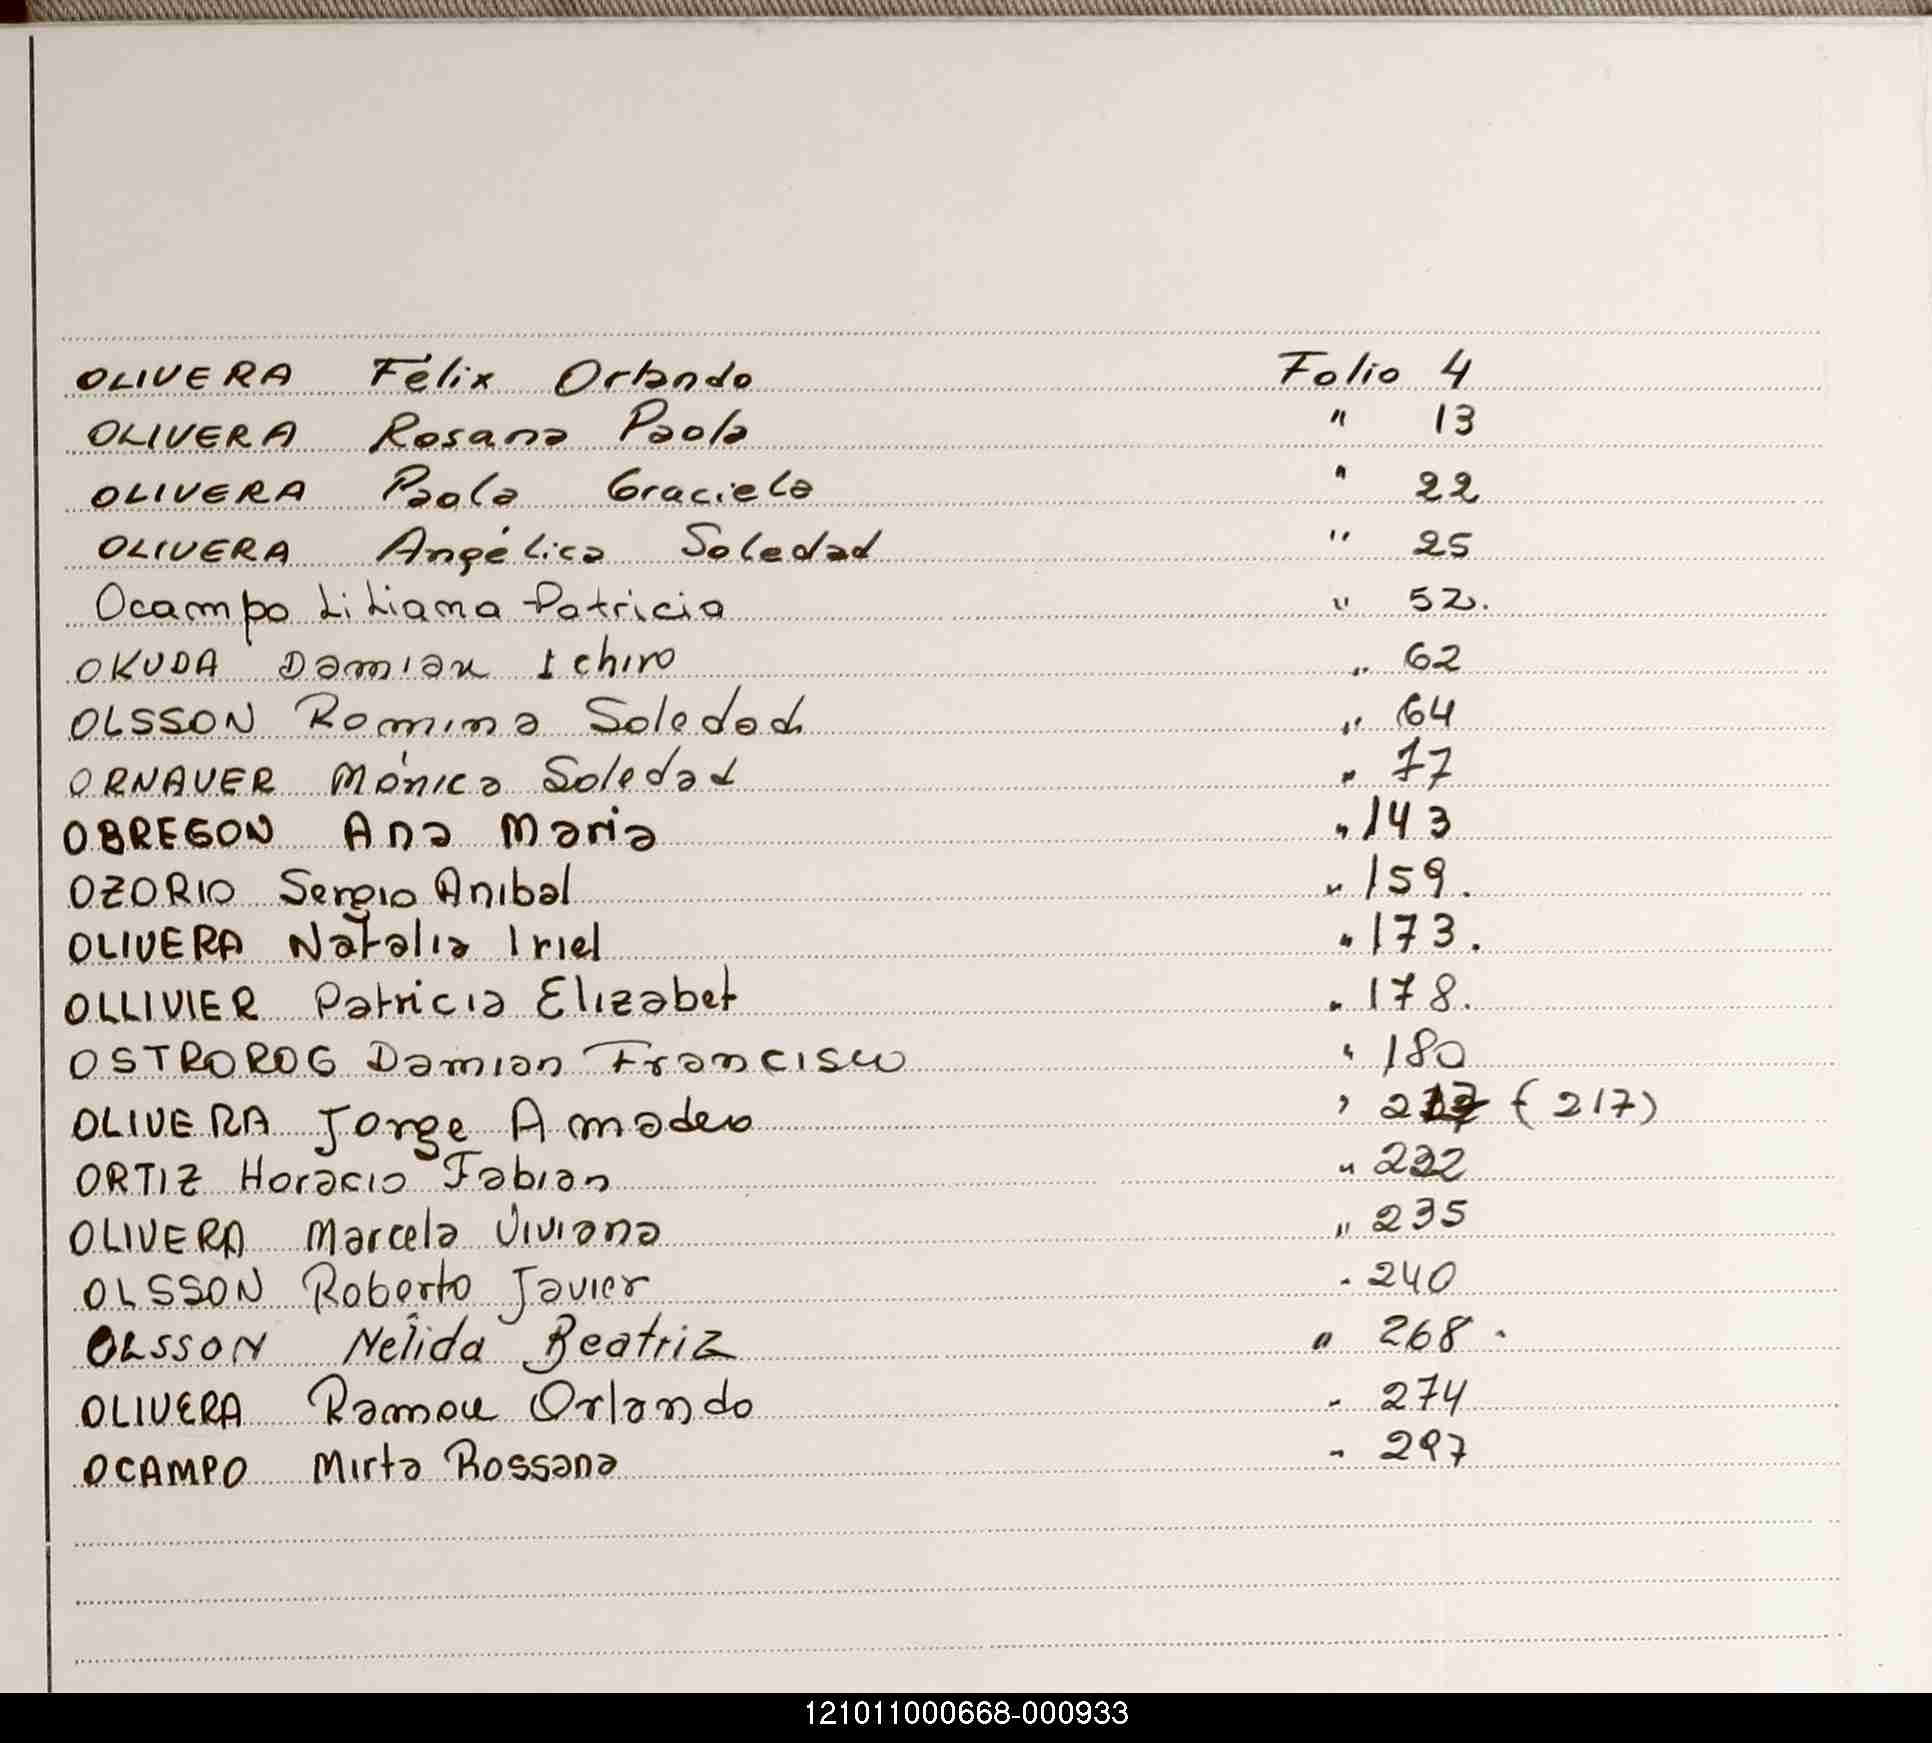 OLIVERA Félix Orlando Folio 4
OLIVERA Rosana Paola " 13
OLIVERA Paola Graciela " 22
OLIVERA Angélica Soledad " 25
Ocampo Liliana Patricia " 52.
OKUDA Damian Ichiro " 62
OLSSON Romina Soledad " 64
ORNAUER Mónica Soledad " 77
OBREGON Ana Maria " 143
OZORIO Sergio Anibal " 159.
OLIVERA Natalia Iriel " 173.
OLLIVIER Patricia Elizabet " 178.
OSTROROG Damian Francisco " 180
OLIVERA Jorge Amadeo " 217 (217)
ORTIZ Horacio Fabian " 232
OLIVERA Marcela Viviana " 235
OLSSON Roberto Javier " 240
OLSSON Nélida Beatriz " 268.
OLIVERA Ramon Orlando " 274
OCAMPO Mirta Rossana " 297
121011000668-000933